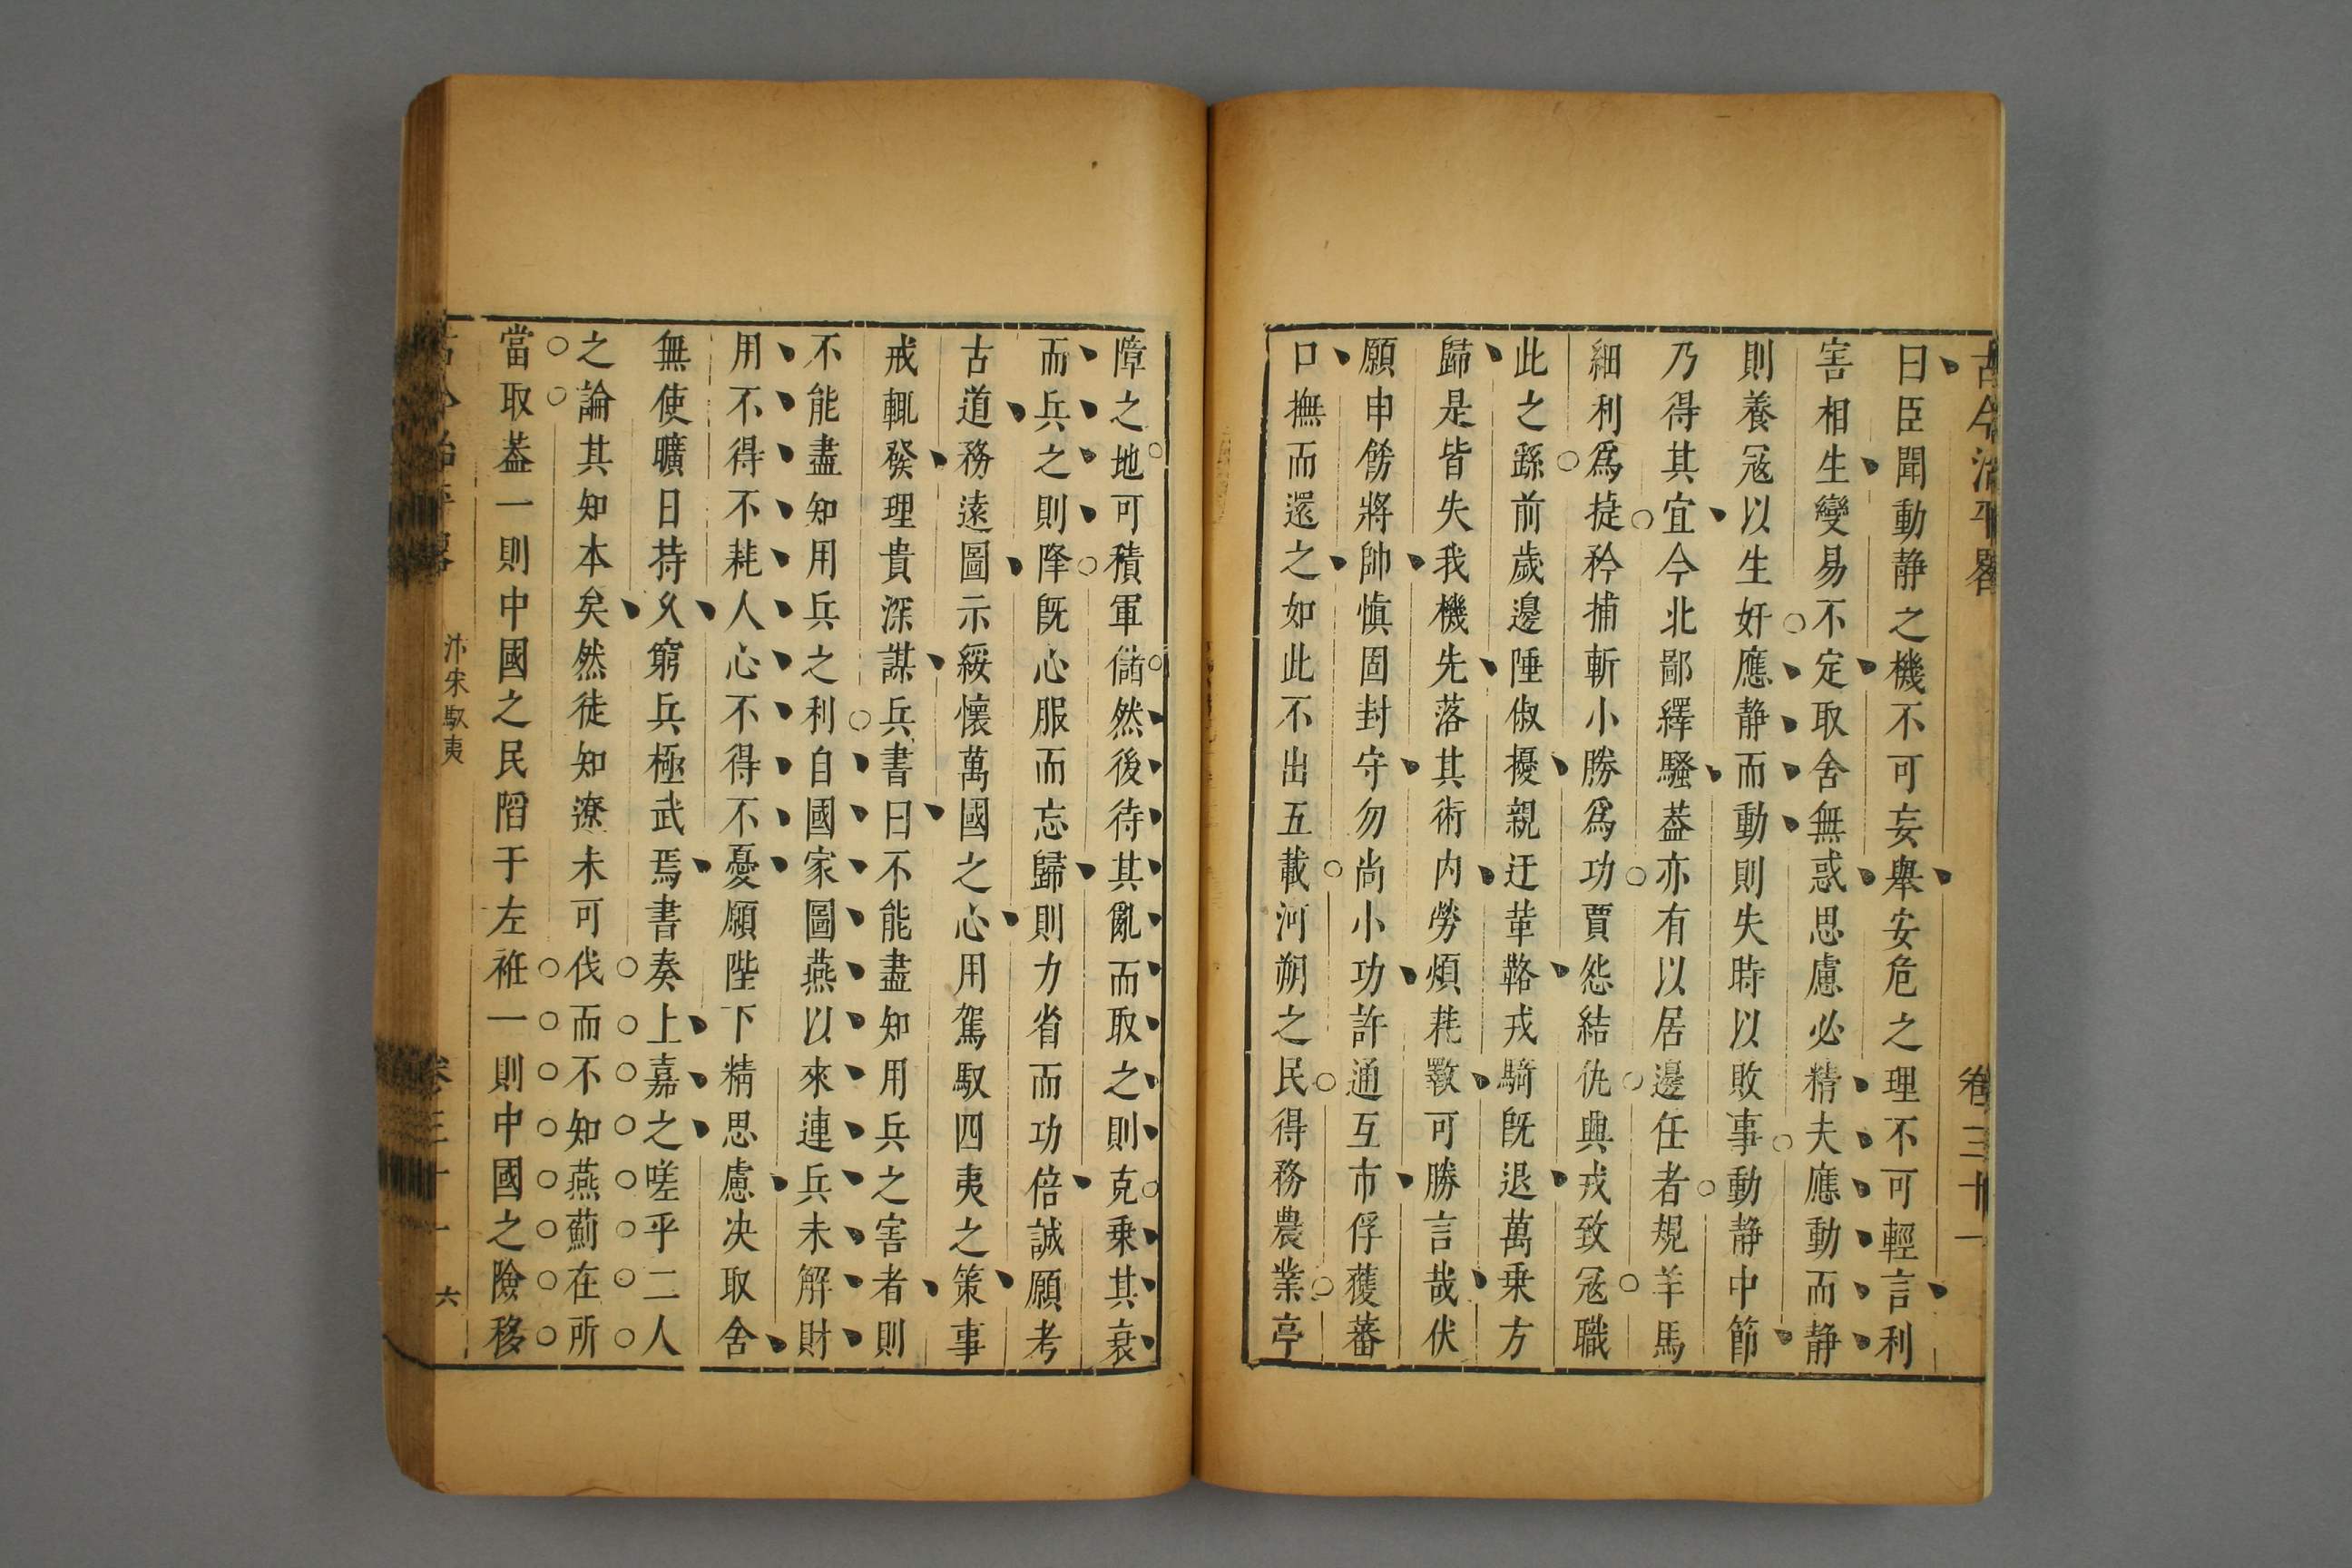 古今治平畧 卷三十一
曰臣聞動静之機不可妄舉安危之理不可輕言利
害相生變易不定取舍無惑思慮必精夫應動而静
則養冦以生奸應静而動則失時以敗事動静中節
乃得其宜今北鄙繹騷葢亦有以居邊任者規羊馬
細利爲捷矜捕斬小勝爲功賈怨結仇興戎致冦職
此之繇前歲邊陲俶擾親迂革輅戎騎旣退萬乗方
歸是皆失我機先落其術内勞煩耗斁可勝言哉伏
願申飭將帥慎固封守勿尚小功許通互市俘獲蕃
口撫而還之如此不出五載河朔之民得務農業亭
障之地可積軍儲然後待其亂而取之則克乗其衰
而兵之則降旣心服而忘歸則力省而功倍誠願考
古道務遠圖示綏懷萬國之心用駕馭四夷之策事
戒輒發理貴深謀兵書曰不能盡知用兵之害者則
不能盡知用兵之利自國家圖燕以來連兵未解財
用不得不耗人心不得不憂願陛下精思慮决取舍
無使曠日持久窮兵極武焉書奏上嘉之嗟乎二人
之論其知本矣然徒知遼未可伐而不知燕薊在所
當取葢一則中國之民陷于左袵一則中國之險移
古今治平畧 汴宋馭夷 卷三十一 六